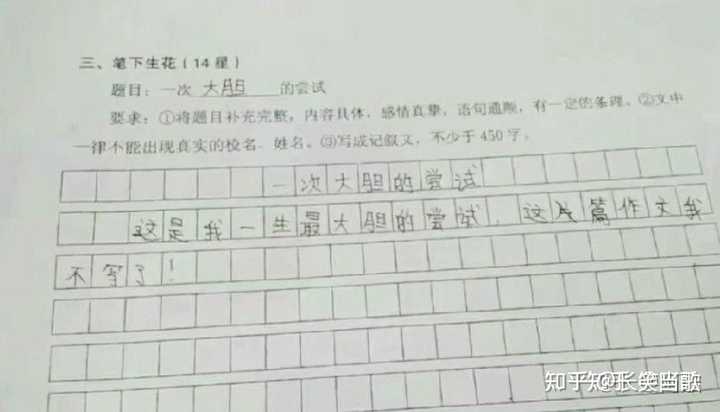 三、笔下生花(14星)
题目:一次 大胆 的尝试
要求:①将题目补充完整,内容具体,感情真挚,语句通顺,有一定的条理。②文中
一律不能出现真实的校名、姓名。③写成记叙文,不少于450字。
一次大胆的尝试
这是我一生最大胆的尝试,这片篇作文我
不写了!
知乎 @张笑当歌